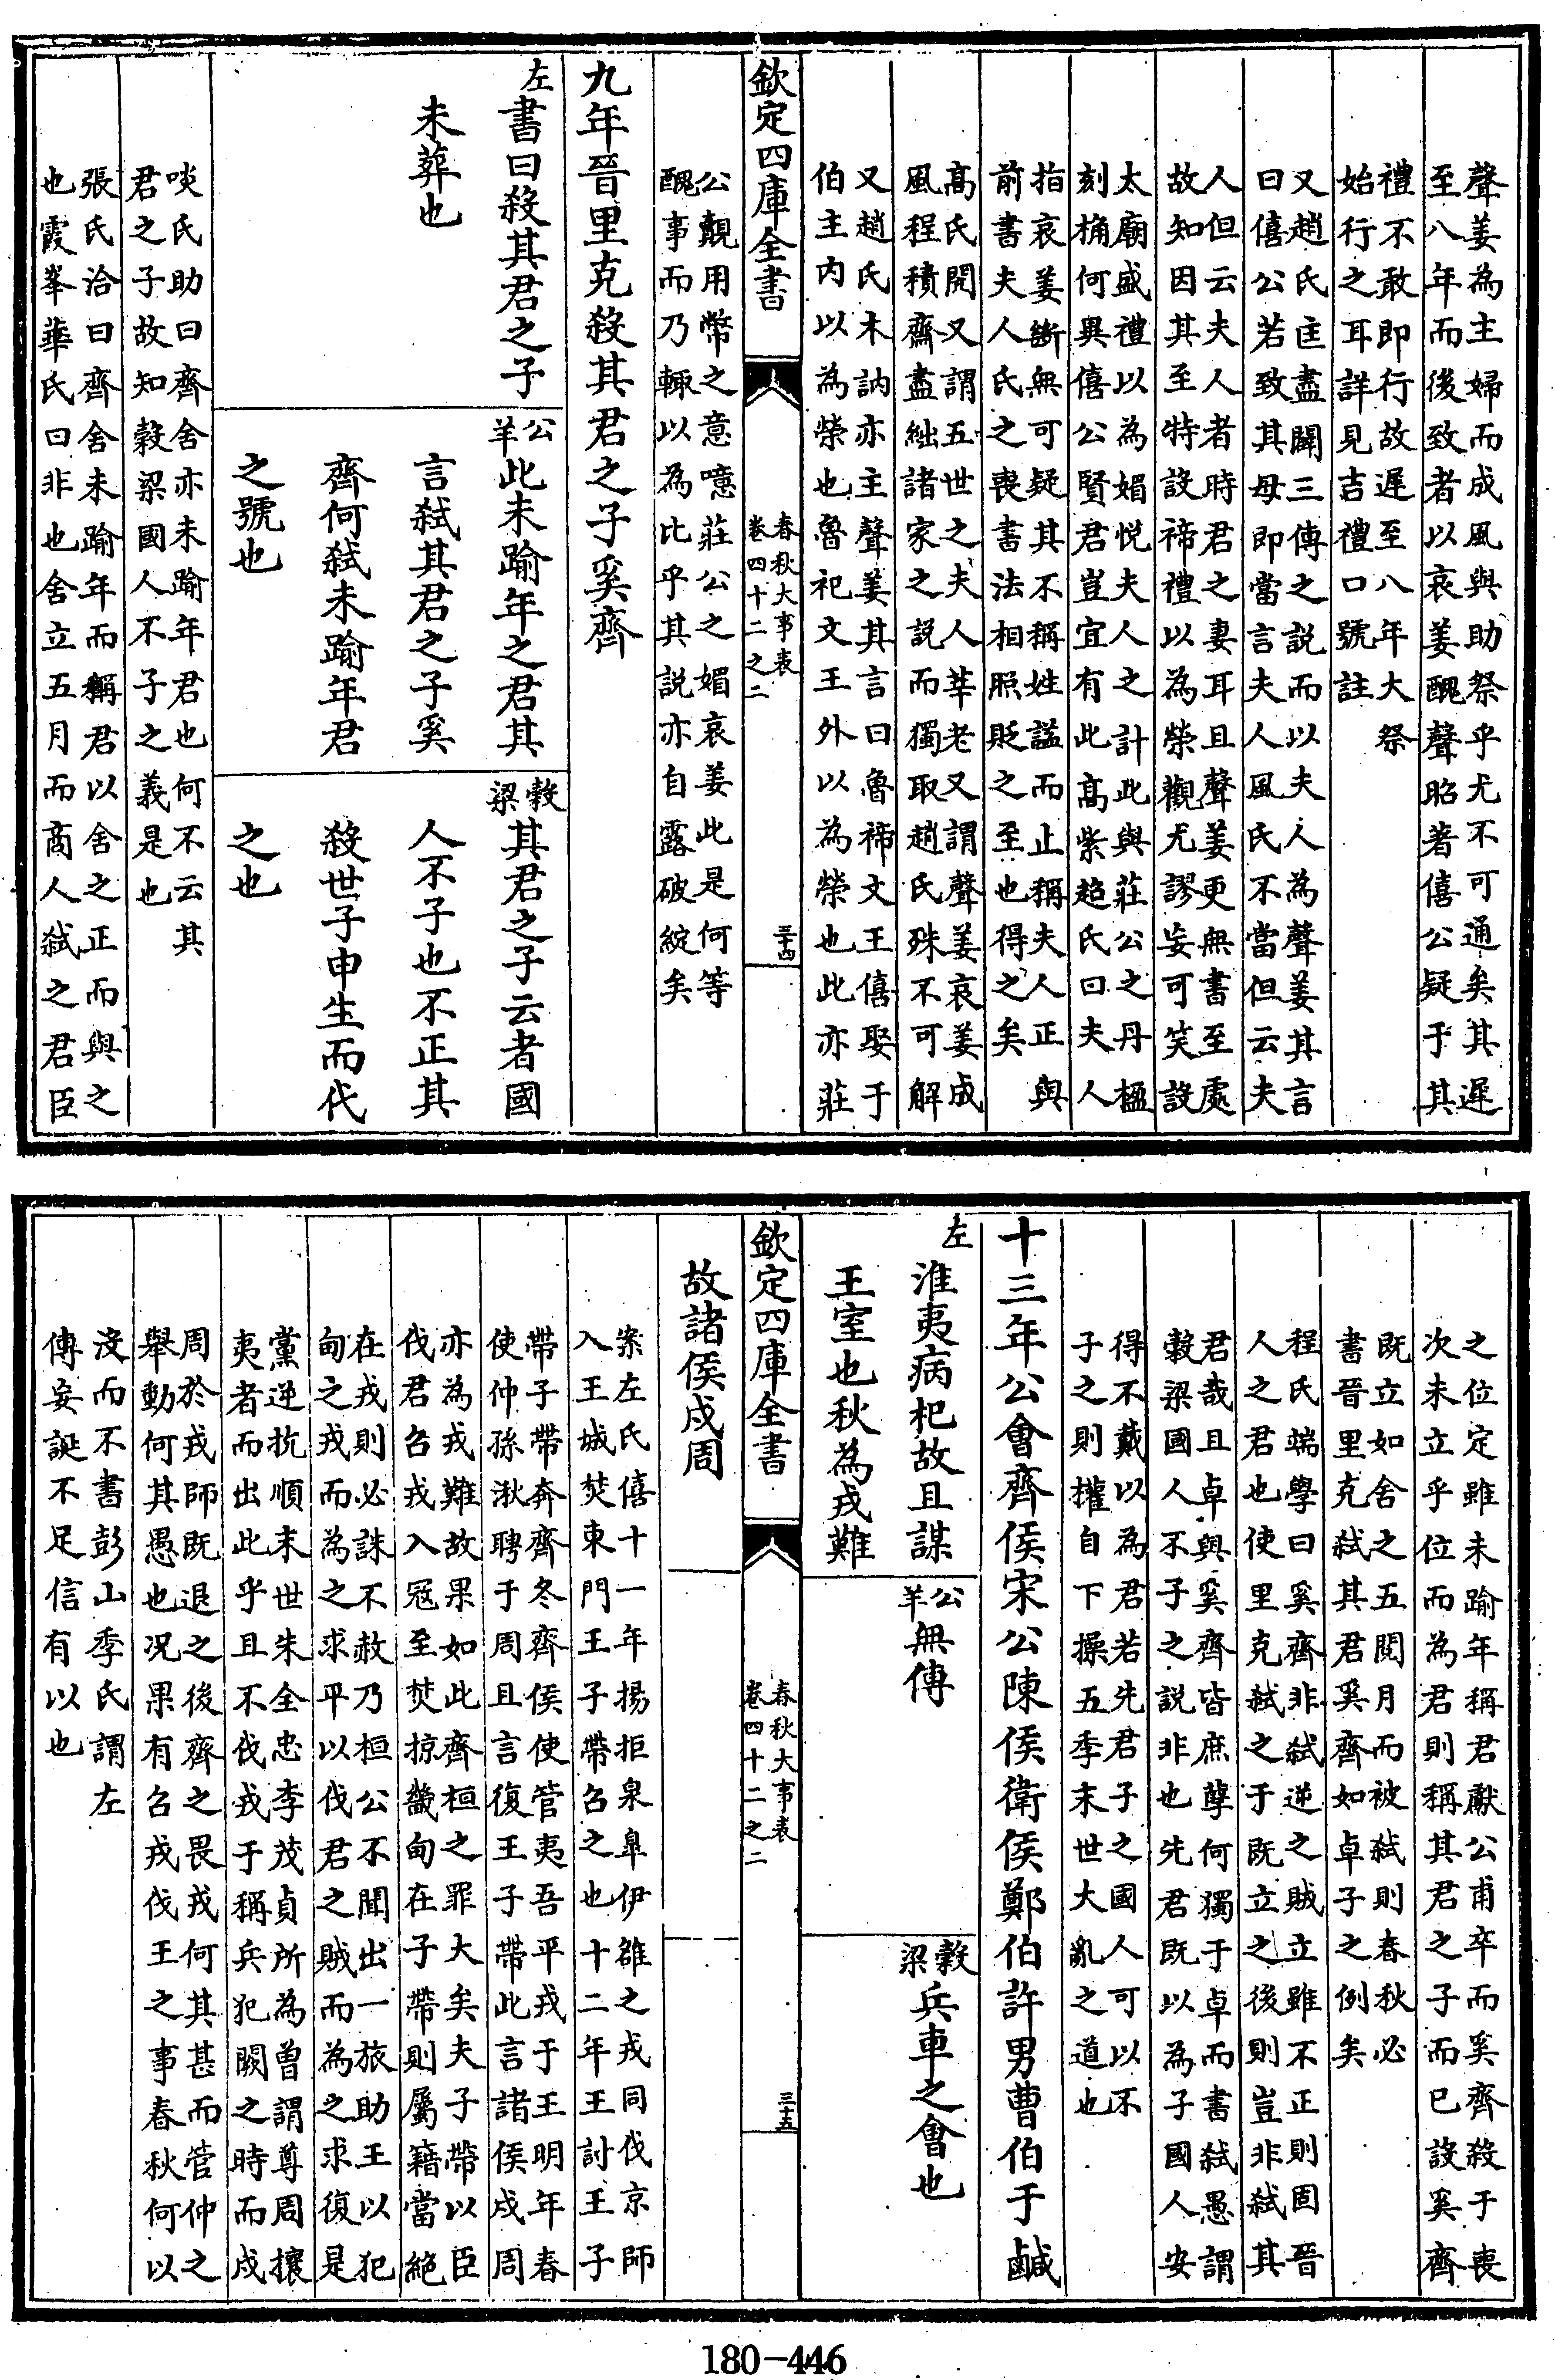 聲姜為主婦而成風與助祭乎尤不可通矣其遲
至八年而後致者以哀姜醜聲昭著僖公疑于其
禮不敢即行故遲至八年大祭
始行之耳詳見吉禮口號註
又趙氏匡盡闢三傳之説而以夫人為聲姜其言
曰僖公若致其母即當言夫人風氏不當但云夫
人但云夫人者時君之妻耳且聲姜更無書至處
故知因其至特設禘禮以為榮觀尤謬妄可笑設
太廟盛禮以為媚悦夫人之計此與莊公之丹楹
刻桷何異僖公賢君豈宜有此高紫超氏曰夫人
指哀姜斷無可疑其不稱姓諡而止稱夫人正與
前書夫人氏之喪書法相照貶之至也得之矣
高氏閌又謂五世之夫人莘老又謂聲姜哀姜成
風程積齋盡絀諸家之説而獨取趙氏殊不可解
又趙氏木訥亦主聲姜其言曰魯禘文王僖娶于
伯主内以為榮也魯祀文王外以為榮也此亦莊
欽定四庫全書
春秋大事表
卷四十二之二
三十四
公覿用幣之意噫莊公之媚哀姜此是何等
醜事而乃輙以為比乎其説亦自露破綻矣
九年晉里克殺其君之子奚齊
左
書曰殺其君之子
未葬也
公羊
此未踰年之君其
言弑其君之子奚
齊何弑未踰年君
之號也
穀梁
其君之子云者國
人不子也不正其
殺世子申生而代
之也
啖氏助曰齊舍亦未踰年君也何不云其
君之子故知穀梁國人不子之義是也
張氏洽曰齊舍未踰年而稱君以舍之正而與之
也霞峯華氏曰非也舍立五月而商人弑之君臣
之位定雖未踰年稱君獻公甫卒而奚齊殺于喪
次未立乎位而為君則稱其君之子而已設奚齊
既立如舍之五閱月而被弑則春秋必
書晉里克弑其君奚齊如卓子之例矣
程氏端學曰奚齊非弑逆之賊立雖不正則固晉
人之君也使里克弑之于既立之後則豈非弑其
君哉且卓與奚齊皆庶孽何獨于卓而書弑愚謂
穀梁國人不子之説非也先君既以為子國人安
得不戴以為君若先君子之國人可以不
子之則權自下操五季末世大亂之道也
十三年公會齊侯宋公陳侯衛侯鄭伯許男曹伯于鹹
左
淮夷病杞故且謀
王室也秋為戎難
公羊
無傳
穀梁
兵車之會也
欽定四庫全書
春秋大事表
卷四十二之二
三十五
故諸侯戍周
案左氏僖十一年揚拒泉臯伊雒之戎同伐京師
入王城焚東門王子帶召之也十二年王討王子
帶子帶奔齊冬齊侯使管夷吾平戎于王明年春
使仲孫湫聘于周且言復王子帶此言諸侯戍周
亦為戎難故果如此齊桓之罪大矣夫子帶以臣
伐君召戎入冦至焚掠畿甸在子帶則屬籍當絶
在戎則必誅不赦乃桓公不聞出一旅助王以犯
甸之戎而為之求平以伐君之賊而為之求復是
黨逆抗順末世朱全忠李茂貞所為曾謂尊周攘
夷者而出此乎且不伐戎于稱兵犯闕之時而戍
周於戎師既退之後齊之畏戎何其甚而管仲之
舉動何其愚也况果有召戎伐王之事春秋何以
沒而不書彭山季氏謂左
傳妄誕不足信有以也
180-446